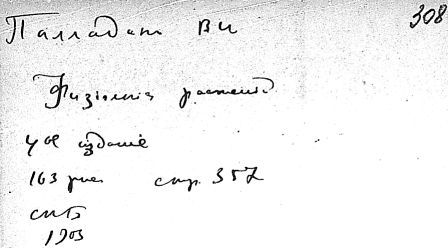 308
Палладин ВИ
Физіологія растеній
4ое изданіе
163 рис стр. 357
СПБ
1903